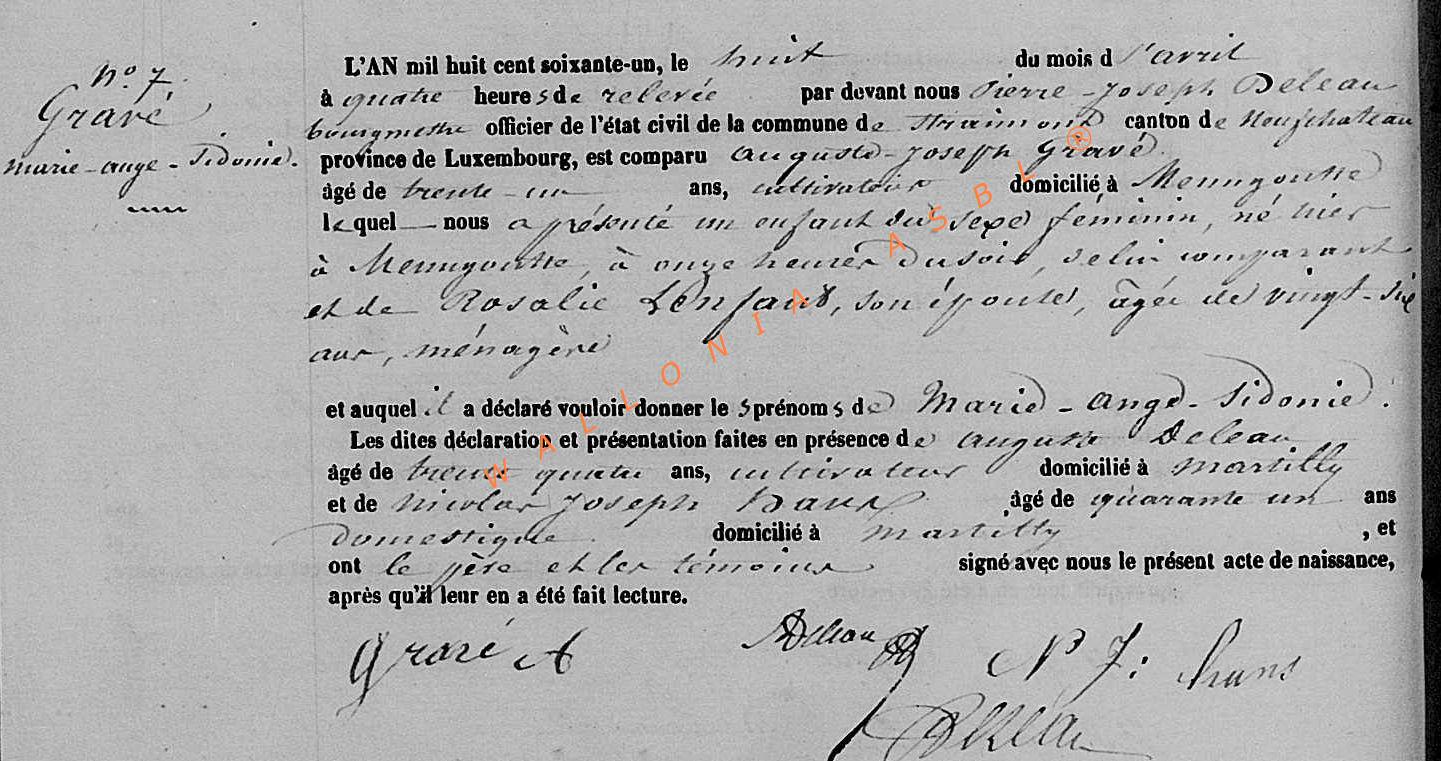 n° 7.
Gravé
marie-ange-Sidonie.
L'AN mil huit cent soixante-un, le huit du mois d'avril
à quatre heures de relevée par devant nous Pierre-Joseph Deleau
bourgmestre officier de l'état civil de la commune de Straimont canton de Neufchateau
province de Luxembourg, est comparu Auguste-Joseph Gravé
âgé de trente-un ans, cultivateur domicilié à Menugoutte
lequel nous a présenté un enfant du sexe féminin, né hier
à Menugoutte, à onze heures du soir, de lui comparant
et de Rosalie Lenfant, son épouse, âgée de vingt-six
ans, ménagère
et auquel il a déclaré vouloir donner les prénoms de Marie-Ange-Sidonie.
Les dites déclaration et présentation faites en présence de Auguste Deleau
âgé de trente quatre ans, cultivateur domicilié à Martilly
et de Nicolas Joseph Hans, âgé de quarante un ans
domestique. domicilié à Martilly, et
ont le père et les témoins signé avec nous le présent acte de naissance,
après qu'il leur en a été fait lecture.
Gravé A ADeleau N J: hans
Deleau
WALLONIA ASBL ®